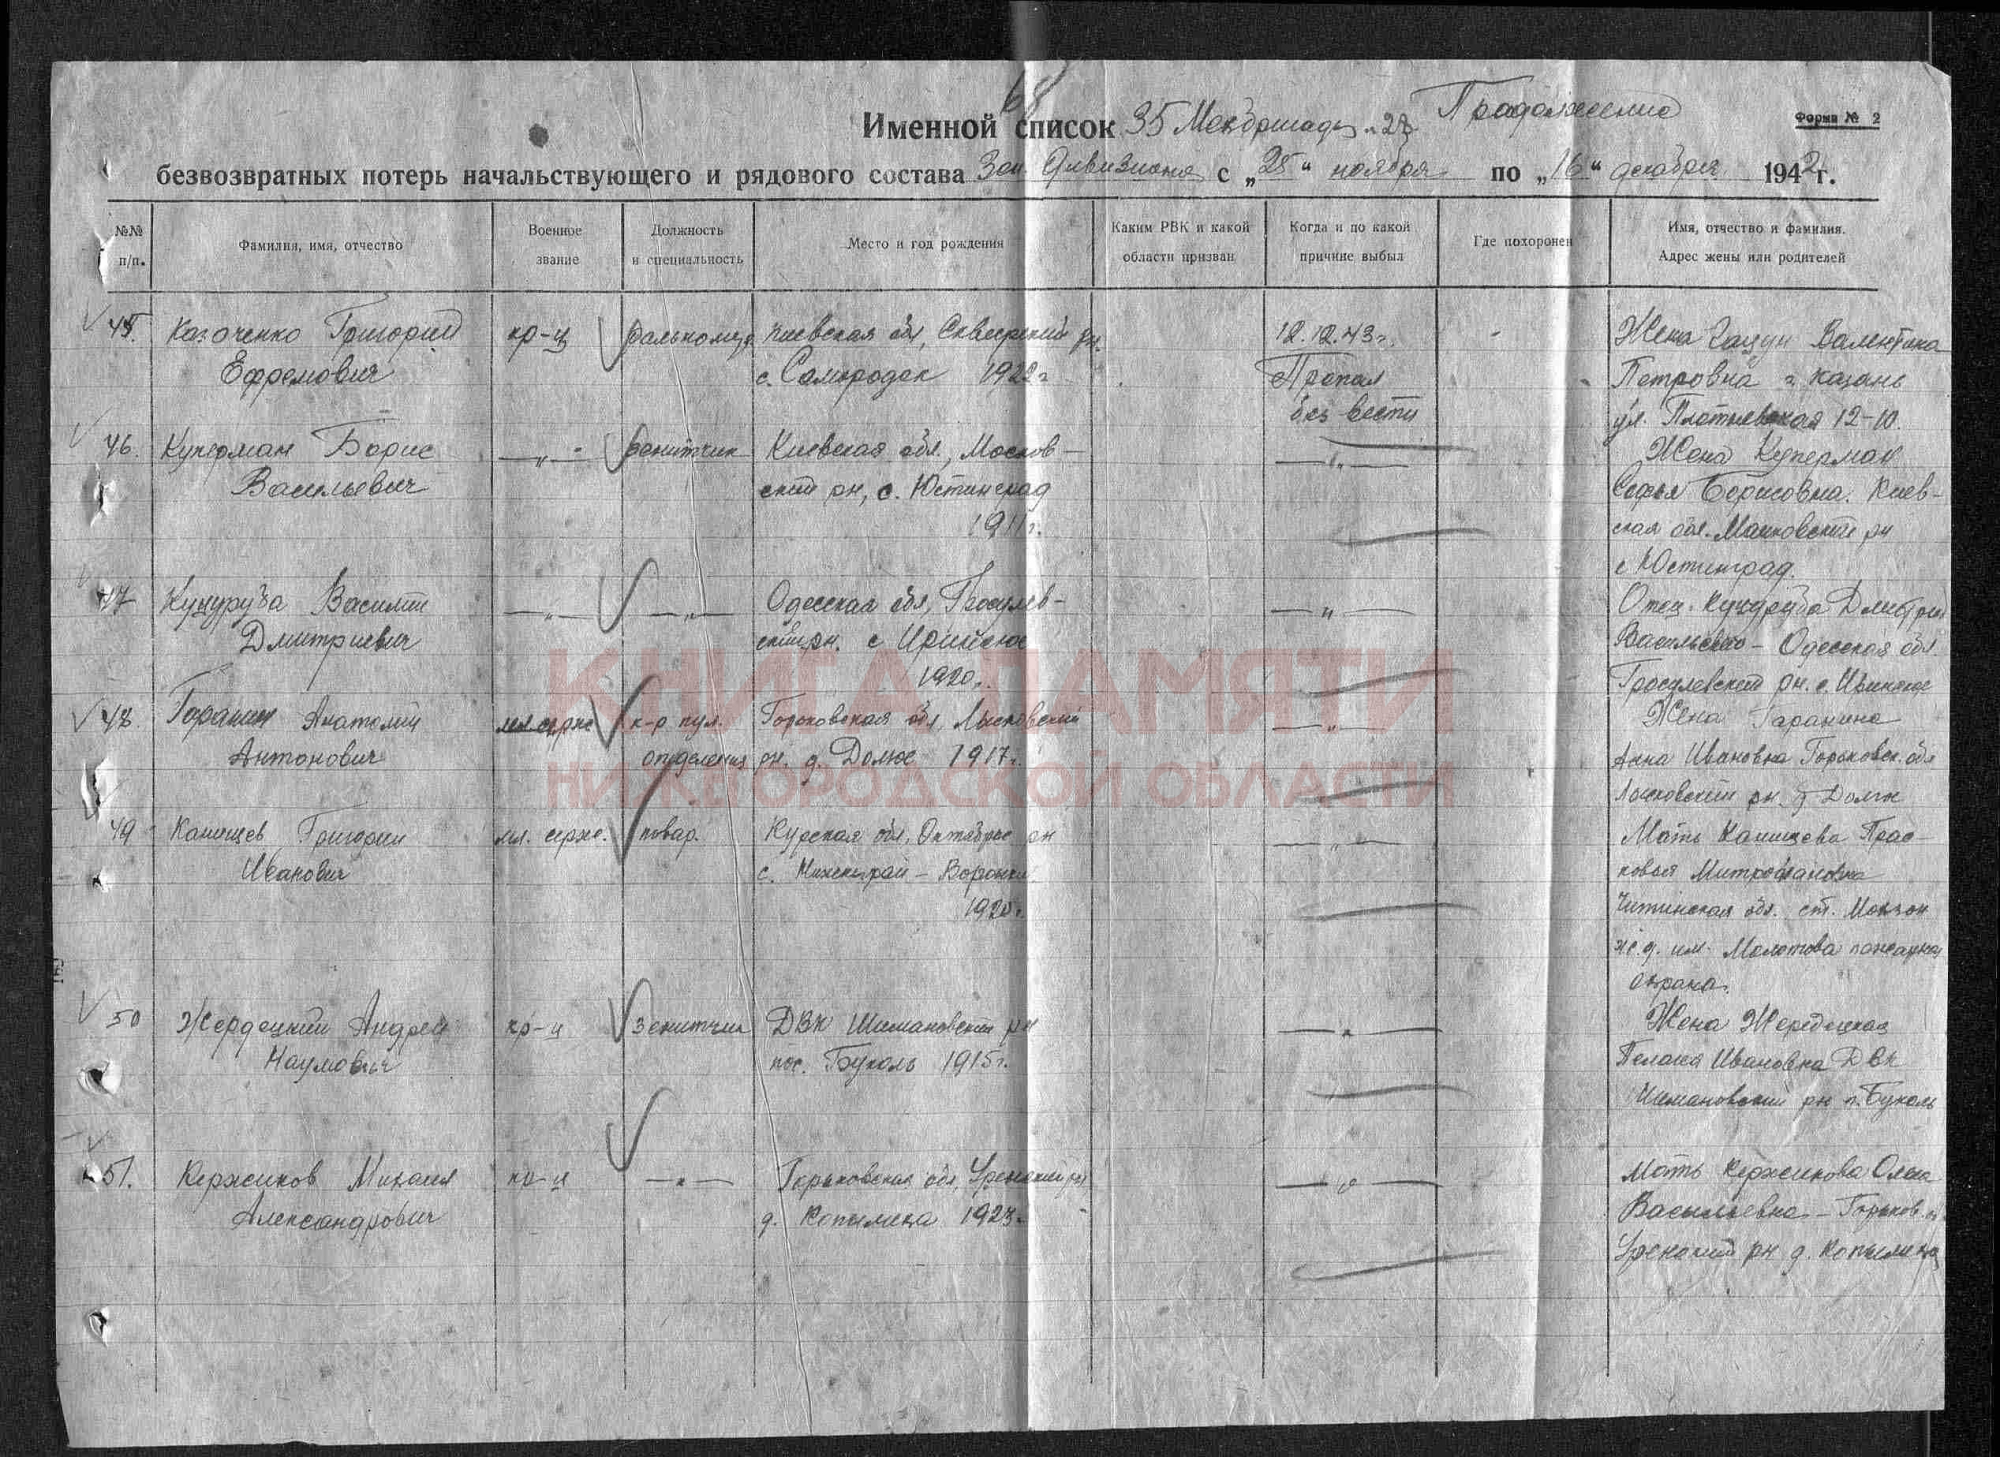 68
Именной список 35 Мехбригады Продолжение
Форма № 2
безвозвратных потерь начальствующего и рядового состава Зен. Дивизиона с „25“ ноября по „16“ декабря 1942 г.
№№ п/п.
Фамилия, имя, отчество
Военное звание
Должность и специальность
Место и год рождения
Каким РВК и какой области призван
Когда и по какой причине выбыл
Где похоронен
Имя, отчество и фамилия. Адрес жены или родителей
45. Казаченко Григорий кр-ц Киевская обл, Сквирский рн. 12.12.43г. - Жена Валентина
Ефремович с. Самородек 1922г Пропал Петровна г Казань
без вести ул. 12-10.
46. Куперман Борис —„— зенитчик Киевская обл., Маньков- —„— Жена Куперман
Васильевич ский рн, с. Юстинград Софья Борисовна. Киев-
1911г. ская обл. Маньковский рн
с Юстинград.
47 Кучуруба Василий —„— —„— Одесская обл, Гросулов- —„— Отец Кучуруба Дмитрий
Дмитриевич ский рн. с Одесская обл.
1920г. Гросуловский рн. с.
48. Гаранин Анатолий мл.серж к-р пул. Горьковская обл, Лысковский —„— Жена Гаранина
Антонович отделения рн. д. 1917г. Анна Ивановна Горьковск. обл
Лысковский рн. д
49 Канищев Григорий мл. серж. повар. Курская обл, Октябрьс рн —„— Мать Канищева Прас-
Иванович с. 1920г. ковья Митрофановна
Читинская обл. ст. Могзон
ж.д. им. Молотова пожарная
охрана.
50 Жердецкий Андрей кр-ц зенитчик ДВК Шимановский рн —„— Жена Жердецкая
Наумович пос. Букаль 1915г. Ивановна ДВК
Шимановский рн п. Букаль
51. Кержиков Михаил кр-ц —„— Горьковская обл, Уренский рн —„— Мать Кержикова Ольга
Александрович д. Копылиха 1923г Васильевна - Горьков.
Уренский рн д. Копылиха
КНИГА ПАМЯТИ
НИЖЕГОРОДСКОЙ ОБЛАСТИ